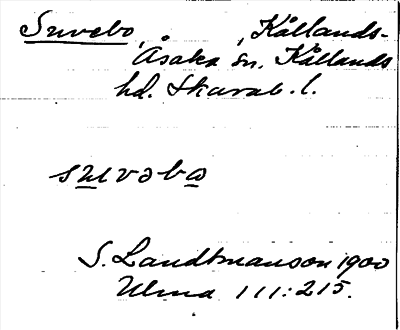 Survebo, , Kållands-
Åsaka sn. Kållands
hd. Skarab. l.
S. Landtmanson 1900
Ulma 111:215.